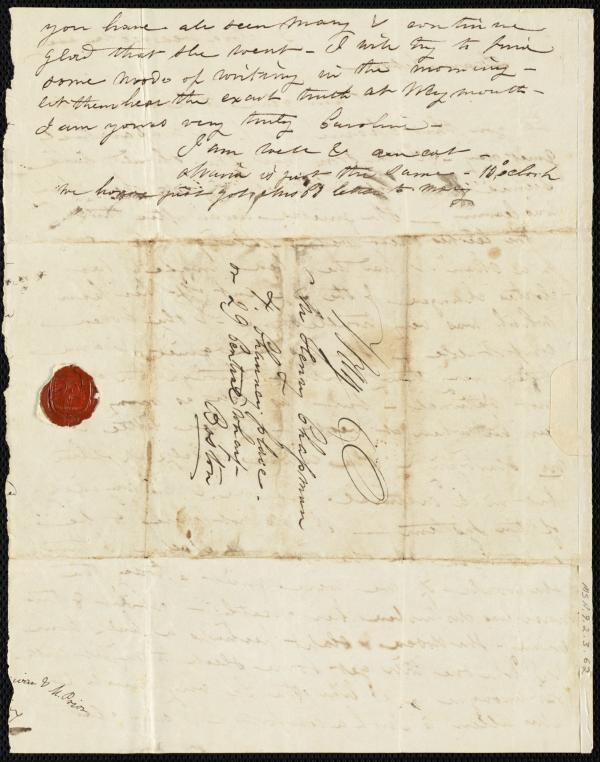 you have all seen Mary & continue
glad that she went - I will try to find
some mode of writing in the morning -
let them hear the exact truth at Weymouth -
I am yours very truly Caroline -
I am well & can eat -
Maria is just the same - 10 o'clock
We have just got letter to Mary
Mr Henry Chapman
4. Chauncy place -
or 29 Central Wharf -
Boston
MS A.9.2.3.62